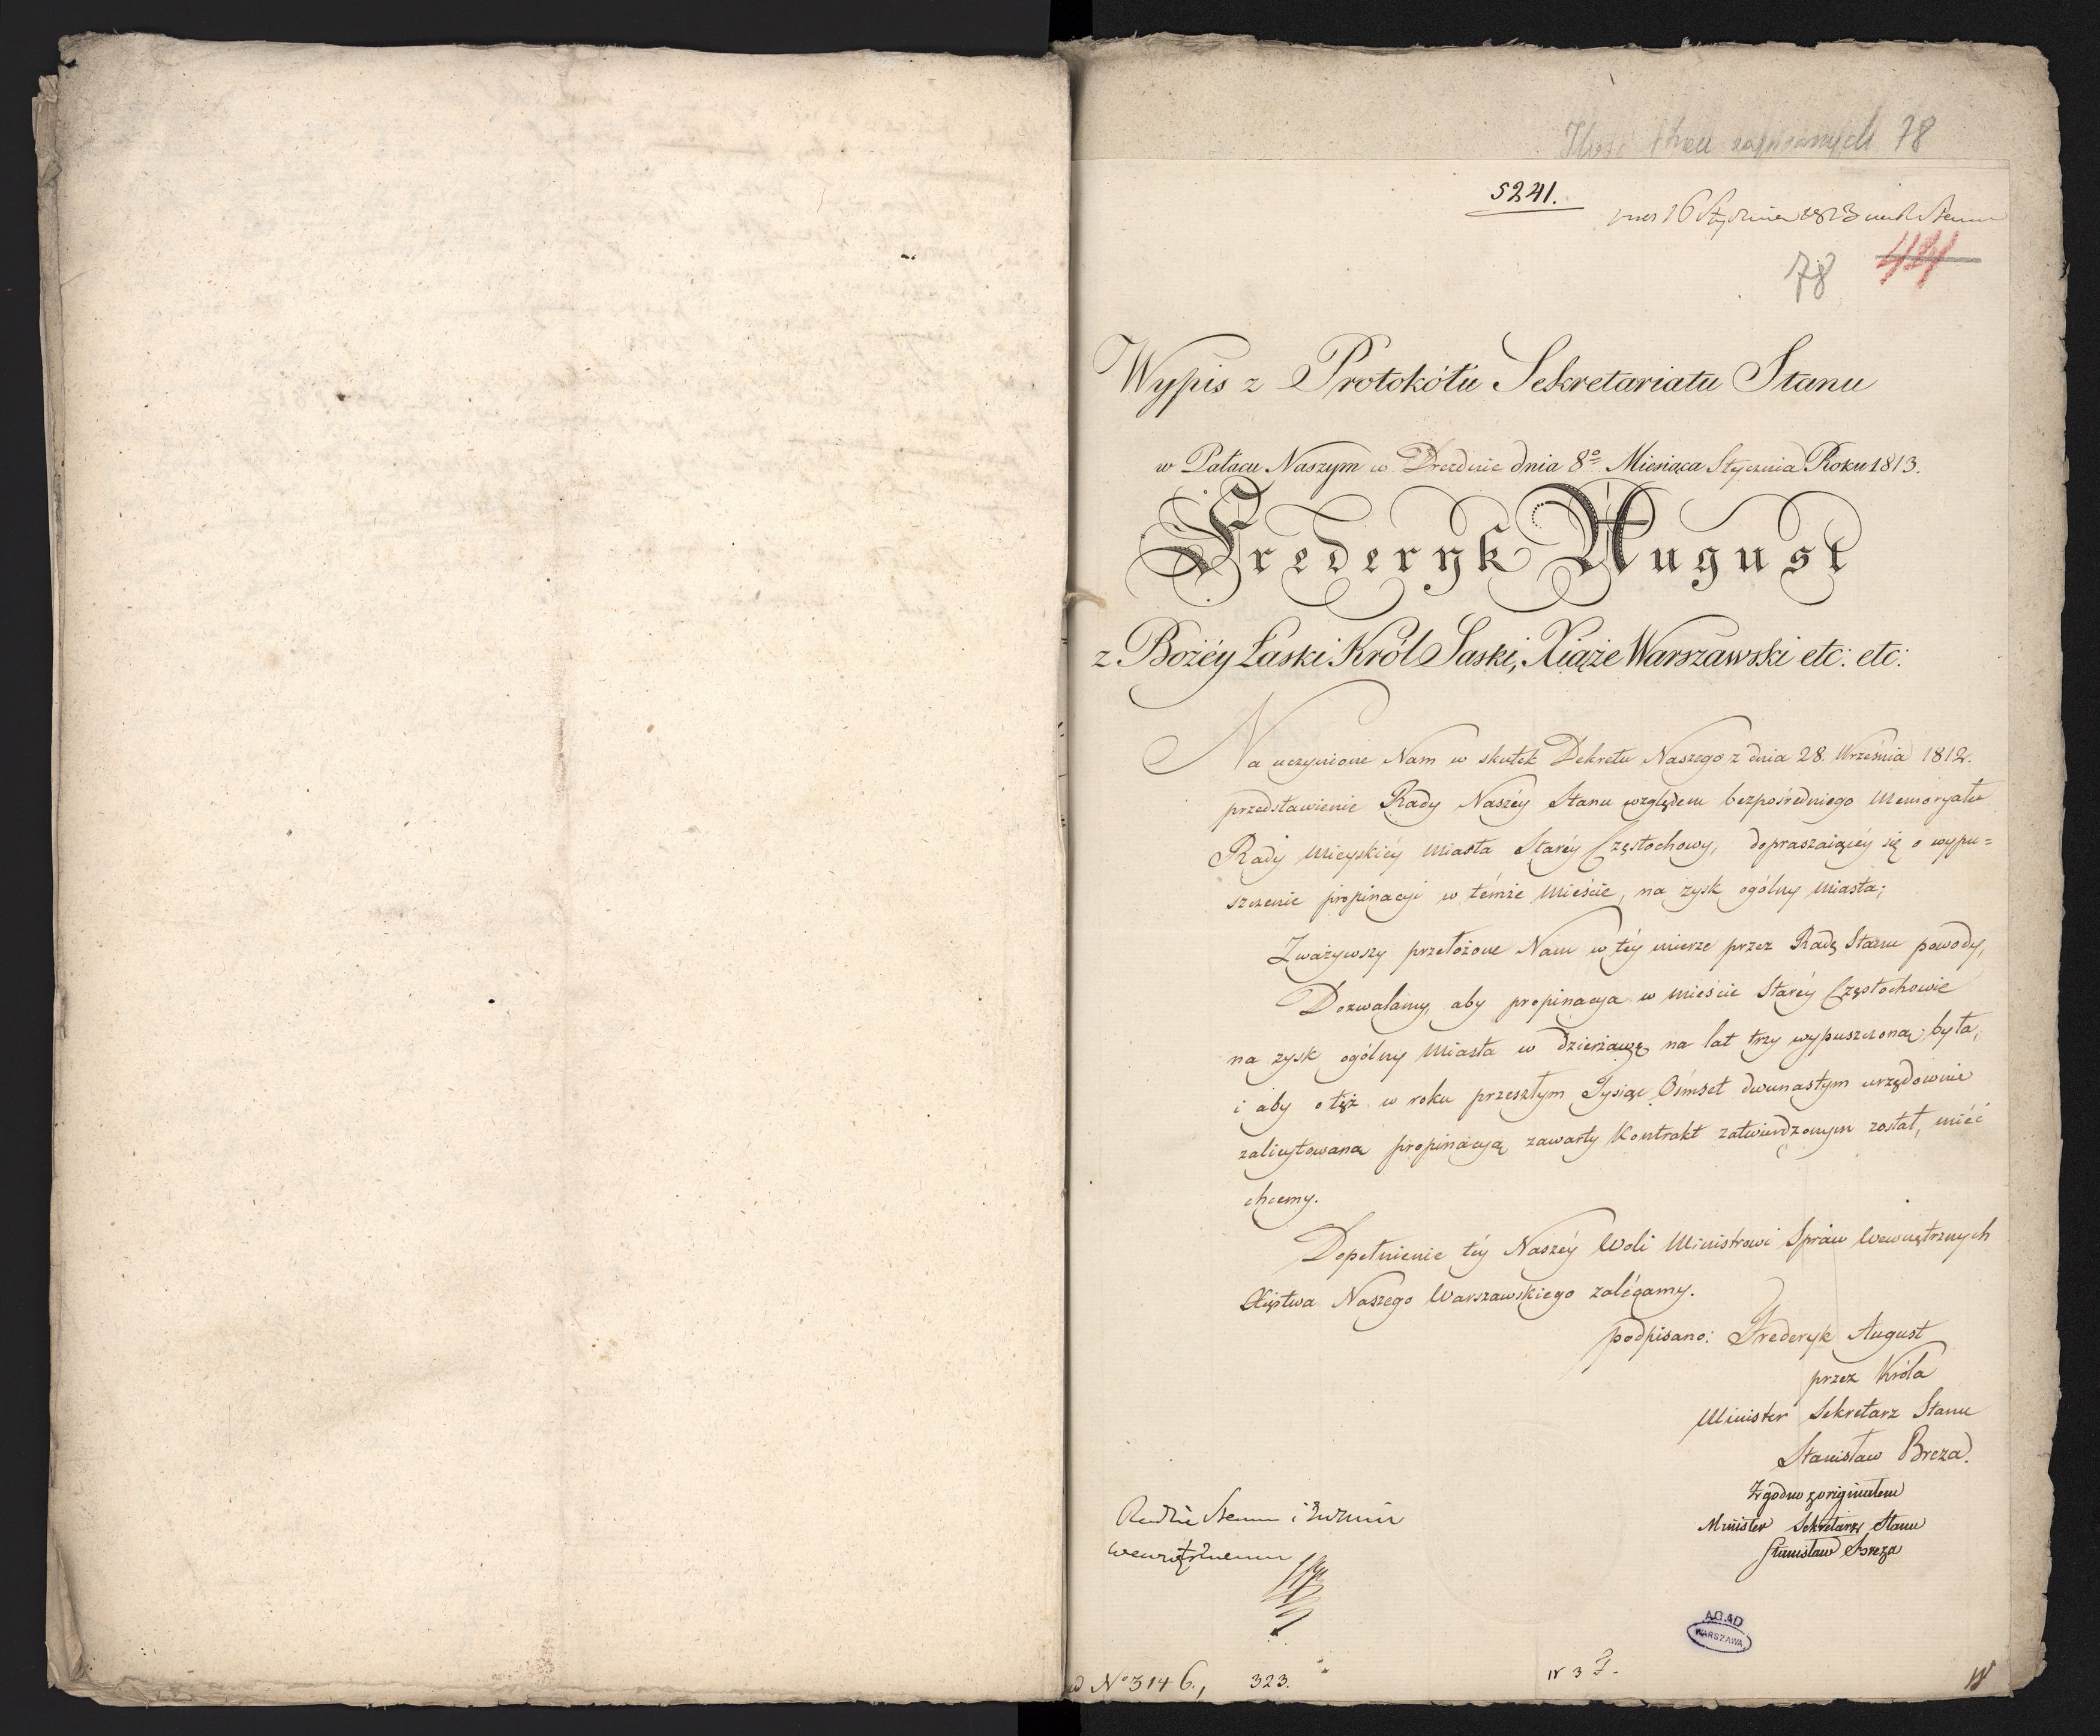 78
5241.
78
Wypis z Protokółu Sekretariatu Stanu
w Pałacu Naszym w Dreźdnie dnia 8º Miesiąca Stycznia Roku 1813.
Frederyk August
z Bożéy Łaski Król Saski, Xiąże Warszawski etc: etc:
Na uczynione Nam w skutek Dekretu Naszego z dnia 28. Września 1812.
przedstawienie Rady Naszéy Stanu względem bezpośredniego Memoryału
Rady Mieyskiéy Miasta Staréy Częstochowy, dopraszaiącéy się o wypu=
szczenie propinacyi w témże Mieście, na zysk ogólny Miasta;
Zważywszy przełożone Nam w téy mierze przez Radę Stanu powody,
Dozwalamy, aby propinacya w Mieście Staréy Częstochowie
na zysk ogólny Miasta w dzierżawę na lat trzy wypuszczoną była,
i aby o téż w roku przeszłym Tysiąc Ośmset dwunastym urzędownie
zalicytowaną propinacyą zawarty Kontrakt zatwierdzonym został, mieć
chcemy.
Dopełnienie téy Naszéy Woli Ministrowi Spraw Wewnętrznych
Xięstwa Naszego Warszawskiego zalécamy.
podpisano: Frederyk August
przez Króla
Minister Sekretarz Stanu
Stanisław Breza.
Zgodno z originałem
Minister Sekretarz Stanu
Stanisław Breza
Radzie Stanu i
Wewnętrznemu
AGAD
WARSZAWA
Nº 3146., 323.